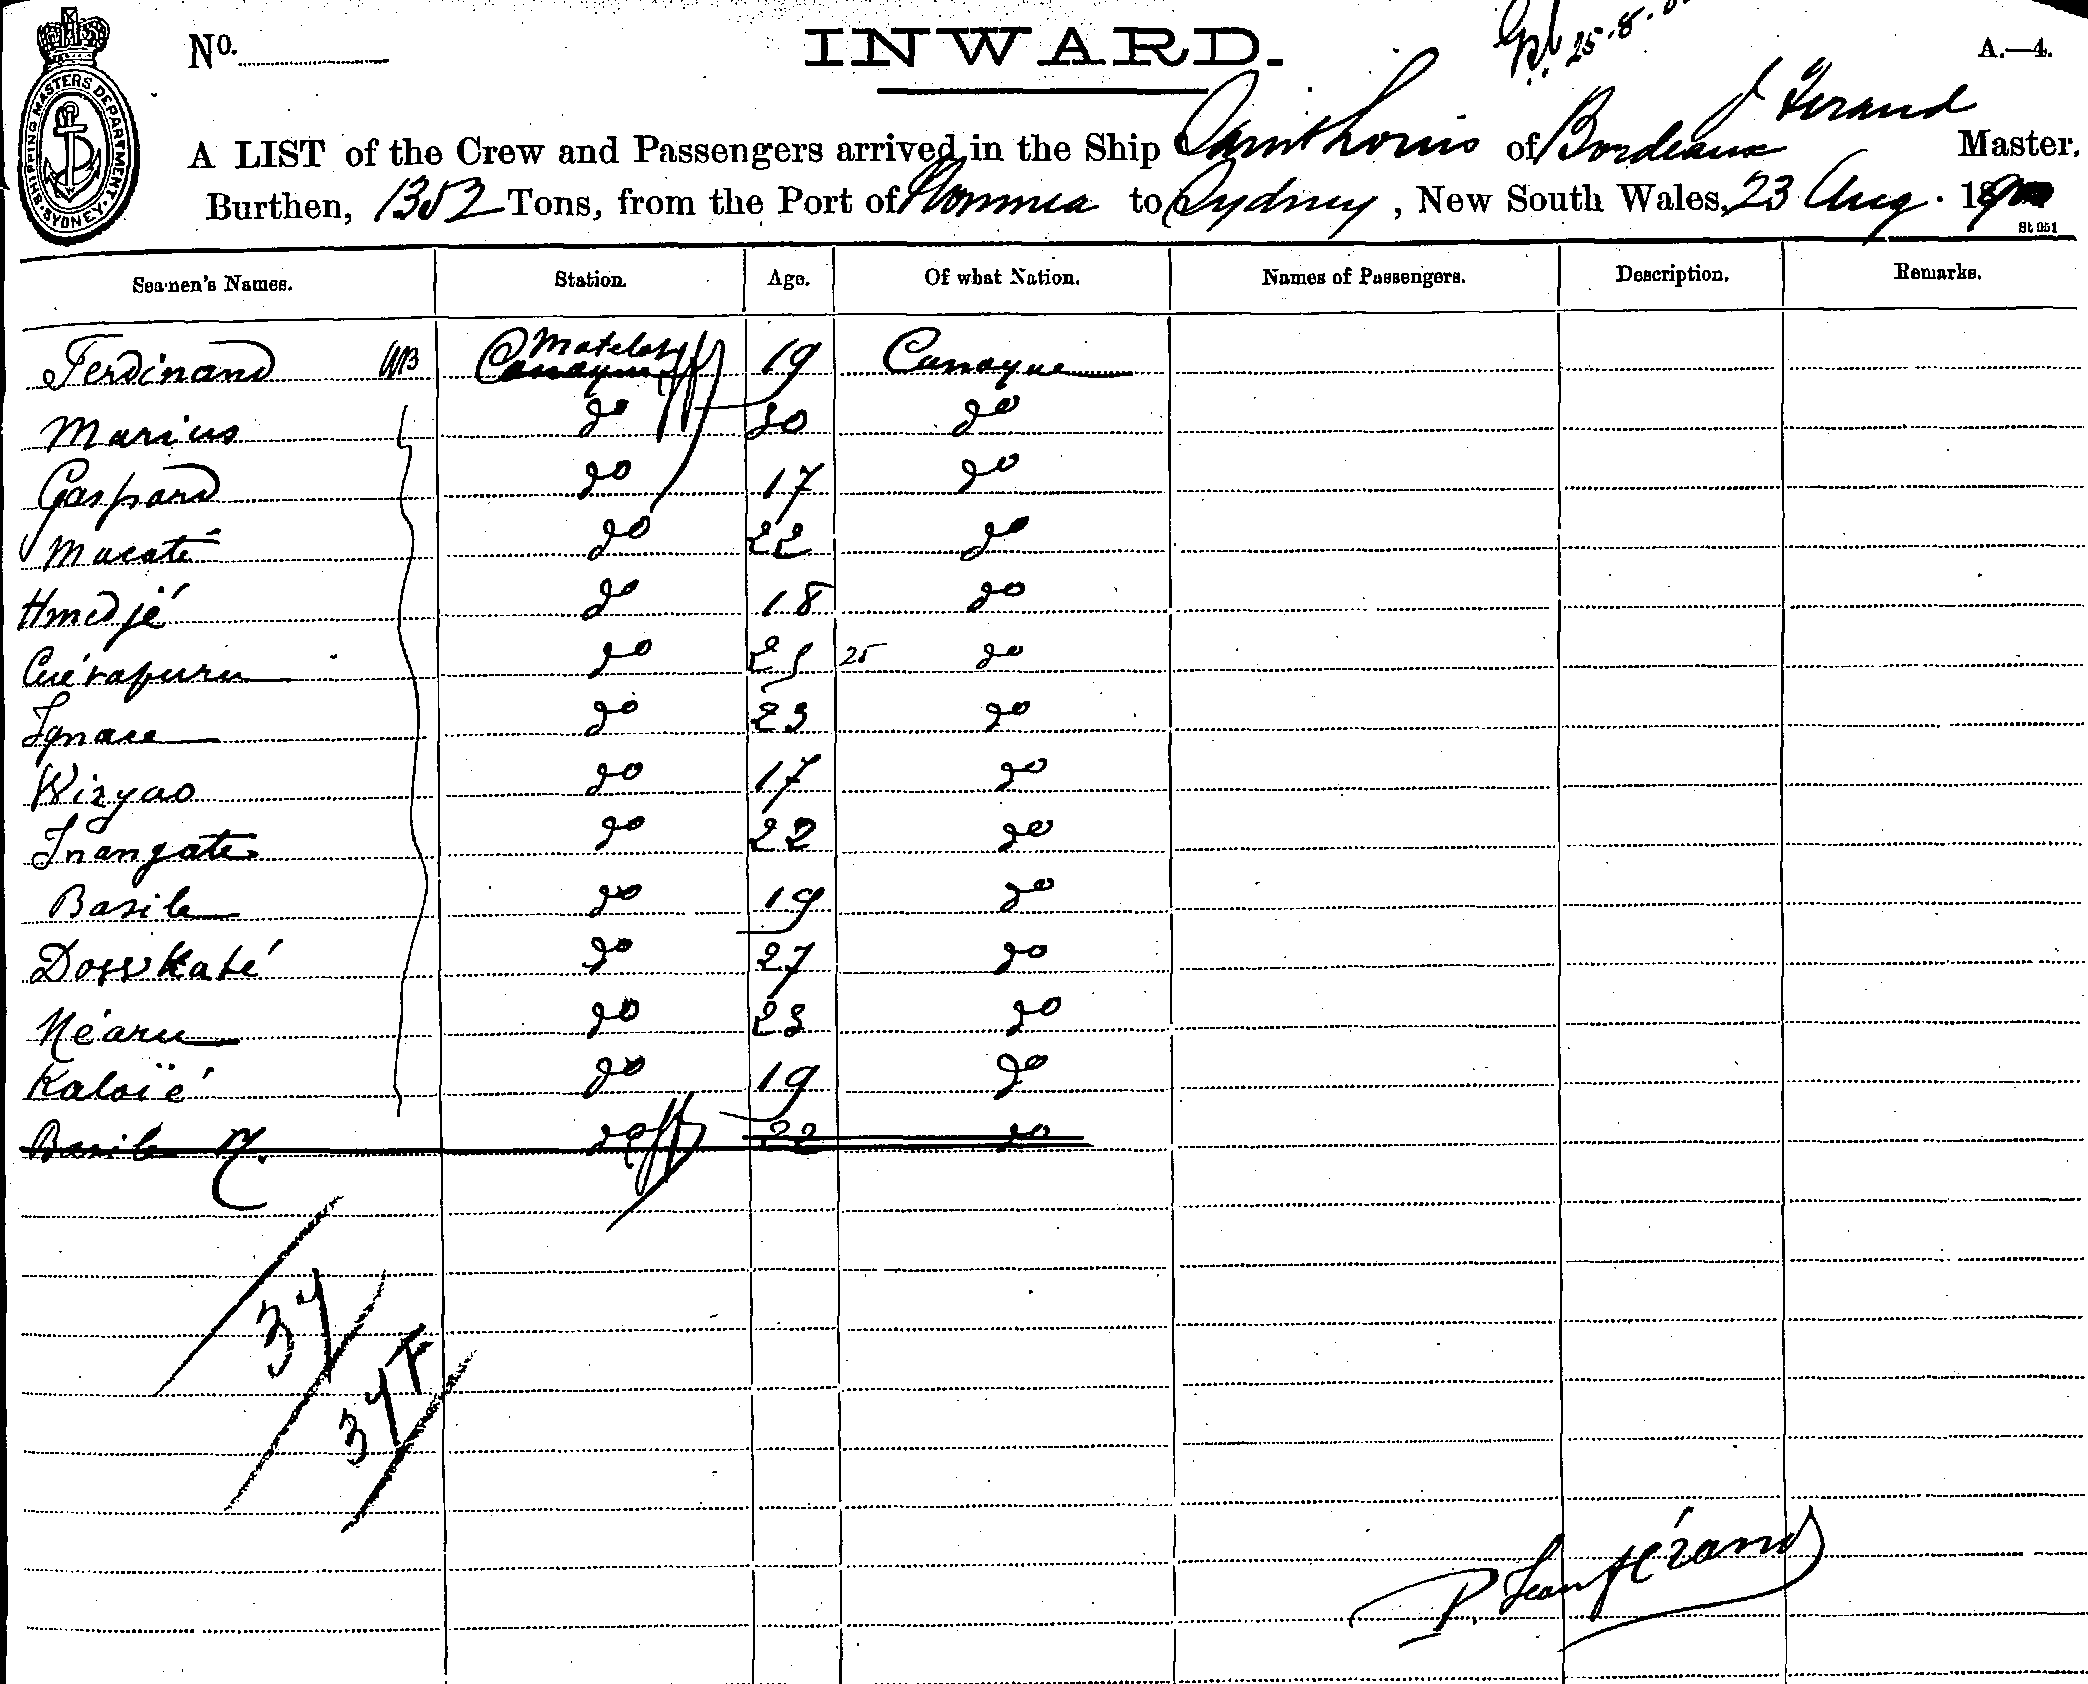 SHIPPING MASTERS DEPARTMENT · SYDNEY ·
No.
INWARD.
25.8.
A.—4.
J Ferand
A LIST of the Crew and Passengers arrived in the Ship Saint Louis of Bordeaux Master.
Burthen, 1352 Tons, from the Port of Noumea to Sydney, New South Wales, 23 Aug. 1900
St 051
Seamen's Names. Station. Age. Of what Nation. Names of Passengers. Description. Remarks.
Ferdinand Matelot 19 Canaque
Marius do 30 do
Gaspard do 17 do
Macaté do 22 do
Hmedjé do 18 do
do 25 25 do
Ignace do 23 do
Wizyao do 17 do
Inangate do 22 do
Basile do 19 do
do 27 do
Néaru do 23 do
Kaloïé do 19 do
Basile M. do 22 do
34
34F